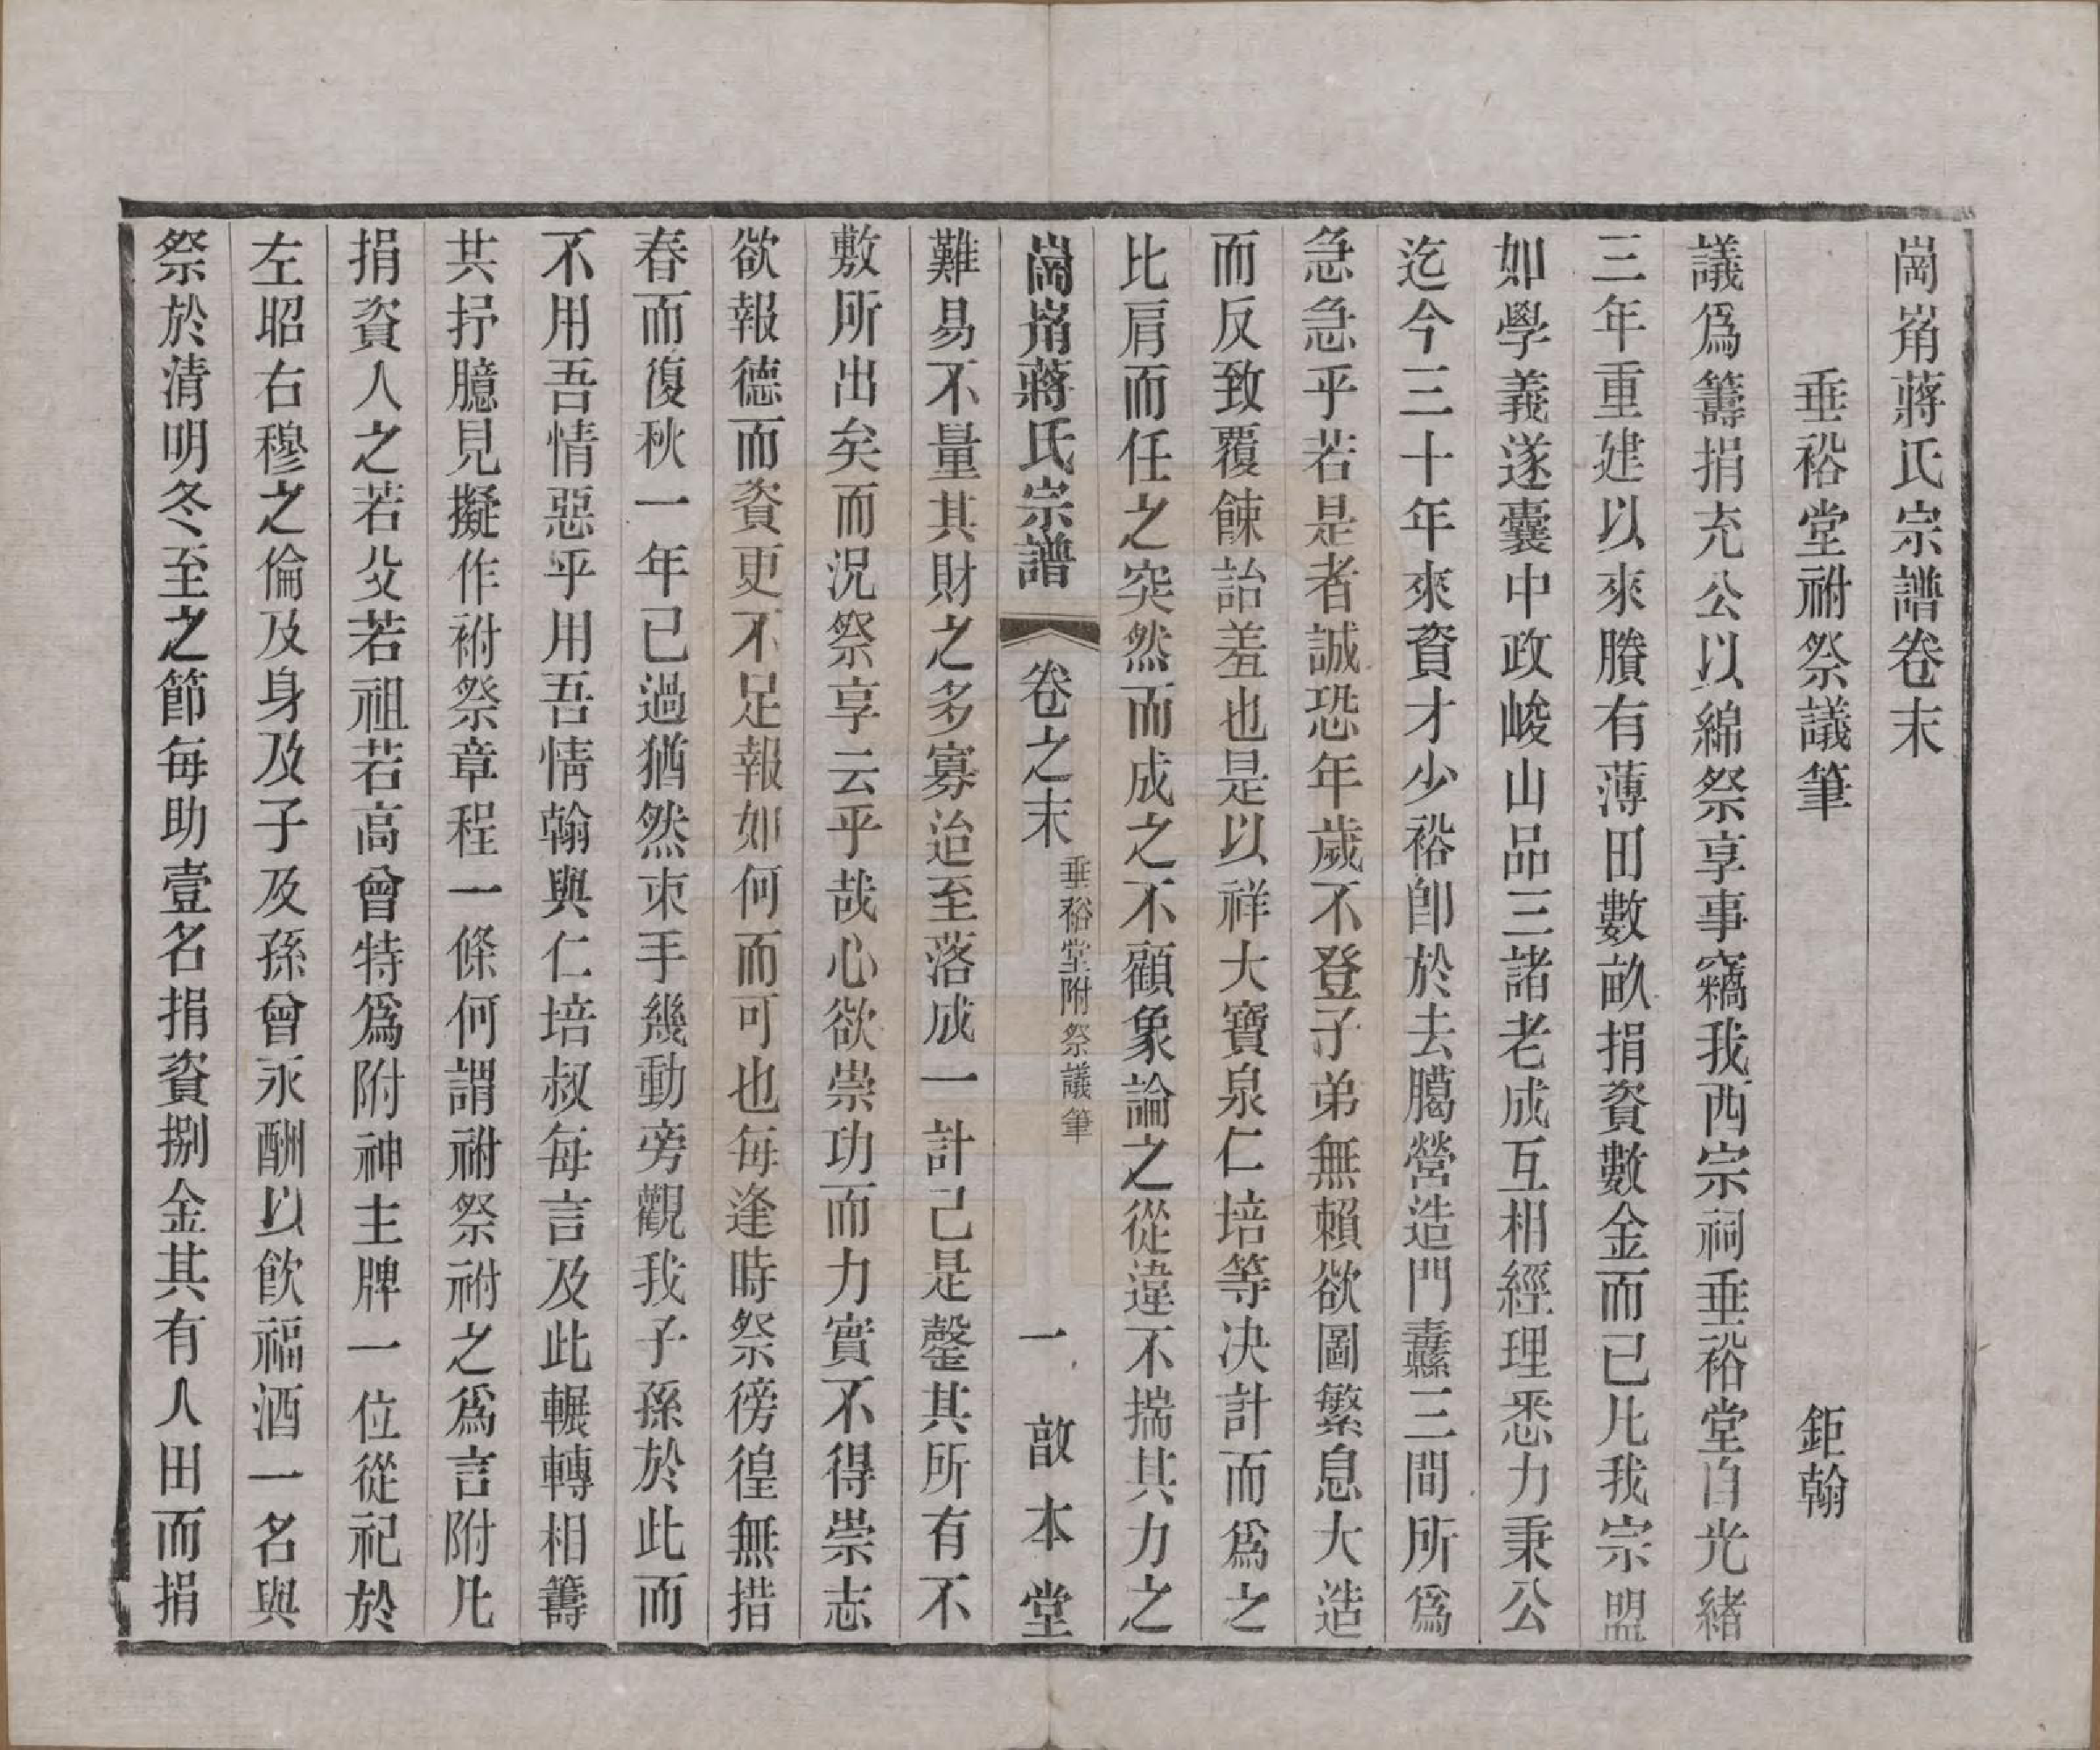 崗崤蔣氏宗譜卷末
垂裕堂祔祭議筆 鉅翰
議爲籌捐充公以綿祭享事竊我西宗祠垂裕堂自光緒
三年重建以來賸有薄田數畝捐資數金而已凡我宗盟
如學義遂囊中政峻山品三諸老成互相經理悉力秉公
迄今三十年來資才少裕卽於去臈營造門纛三間所爲
急急乎若是者誠恐年歲不登子弟無賴欲圖繁息大造
而反致覆餗詒羞也是以祥大寶泉仁培等决計而爲之
比肩而任之突然而成之不顧象論之從違不揣其力之
崗崤蔣氏宗譜 卷之末 垂裕堂附祭議筆 一 敨本堂
難易不量其財之多寡迨至落成一計己是罄其所有不
敷所出矣而況祭享云乎哉心欲崇功而力實不得崇志
欲報德而資更不足報如何而可也每逢時祭徬徨無措
春而復秋一年已過猶然朿手幾動旁觀我子孫於此而
不用吾情惡乎用吾情翰與仁培叔每言及此輾轉相籌
共抒臆見擬作祔祭章程一條何謂祔祭祔之爲言附凡
捐資人之若父若祖若高曾特爲附神主牌一位從祀於
左昭右穆之倫及身及子及孫曾永酬以飮福酒一名與
祭於清明冬至之節每助壹名捐資捌金其有人田而捐